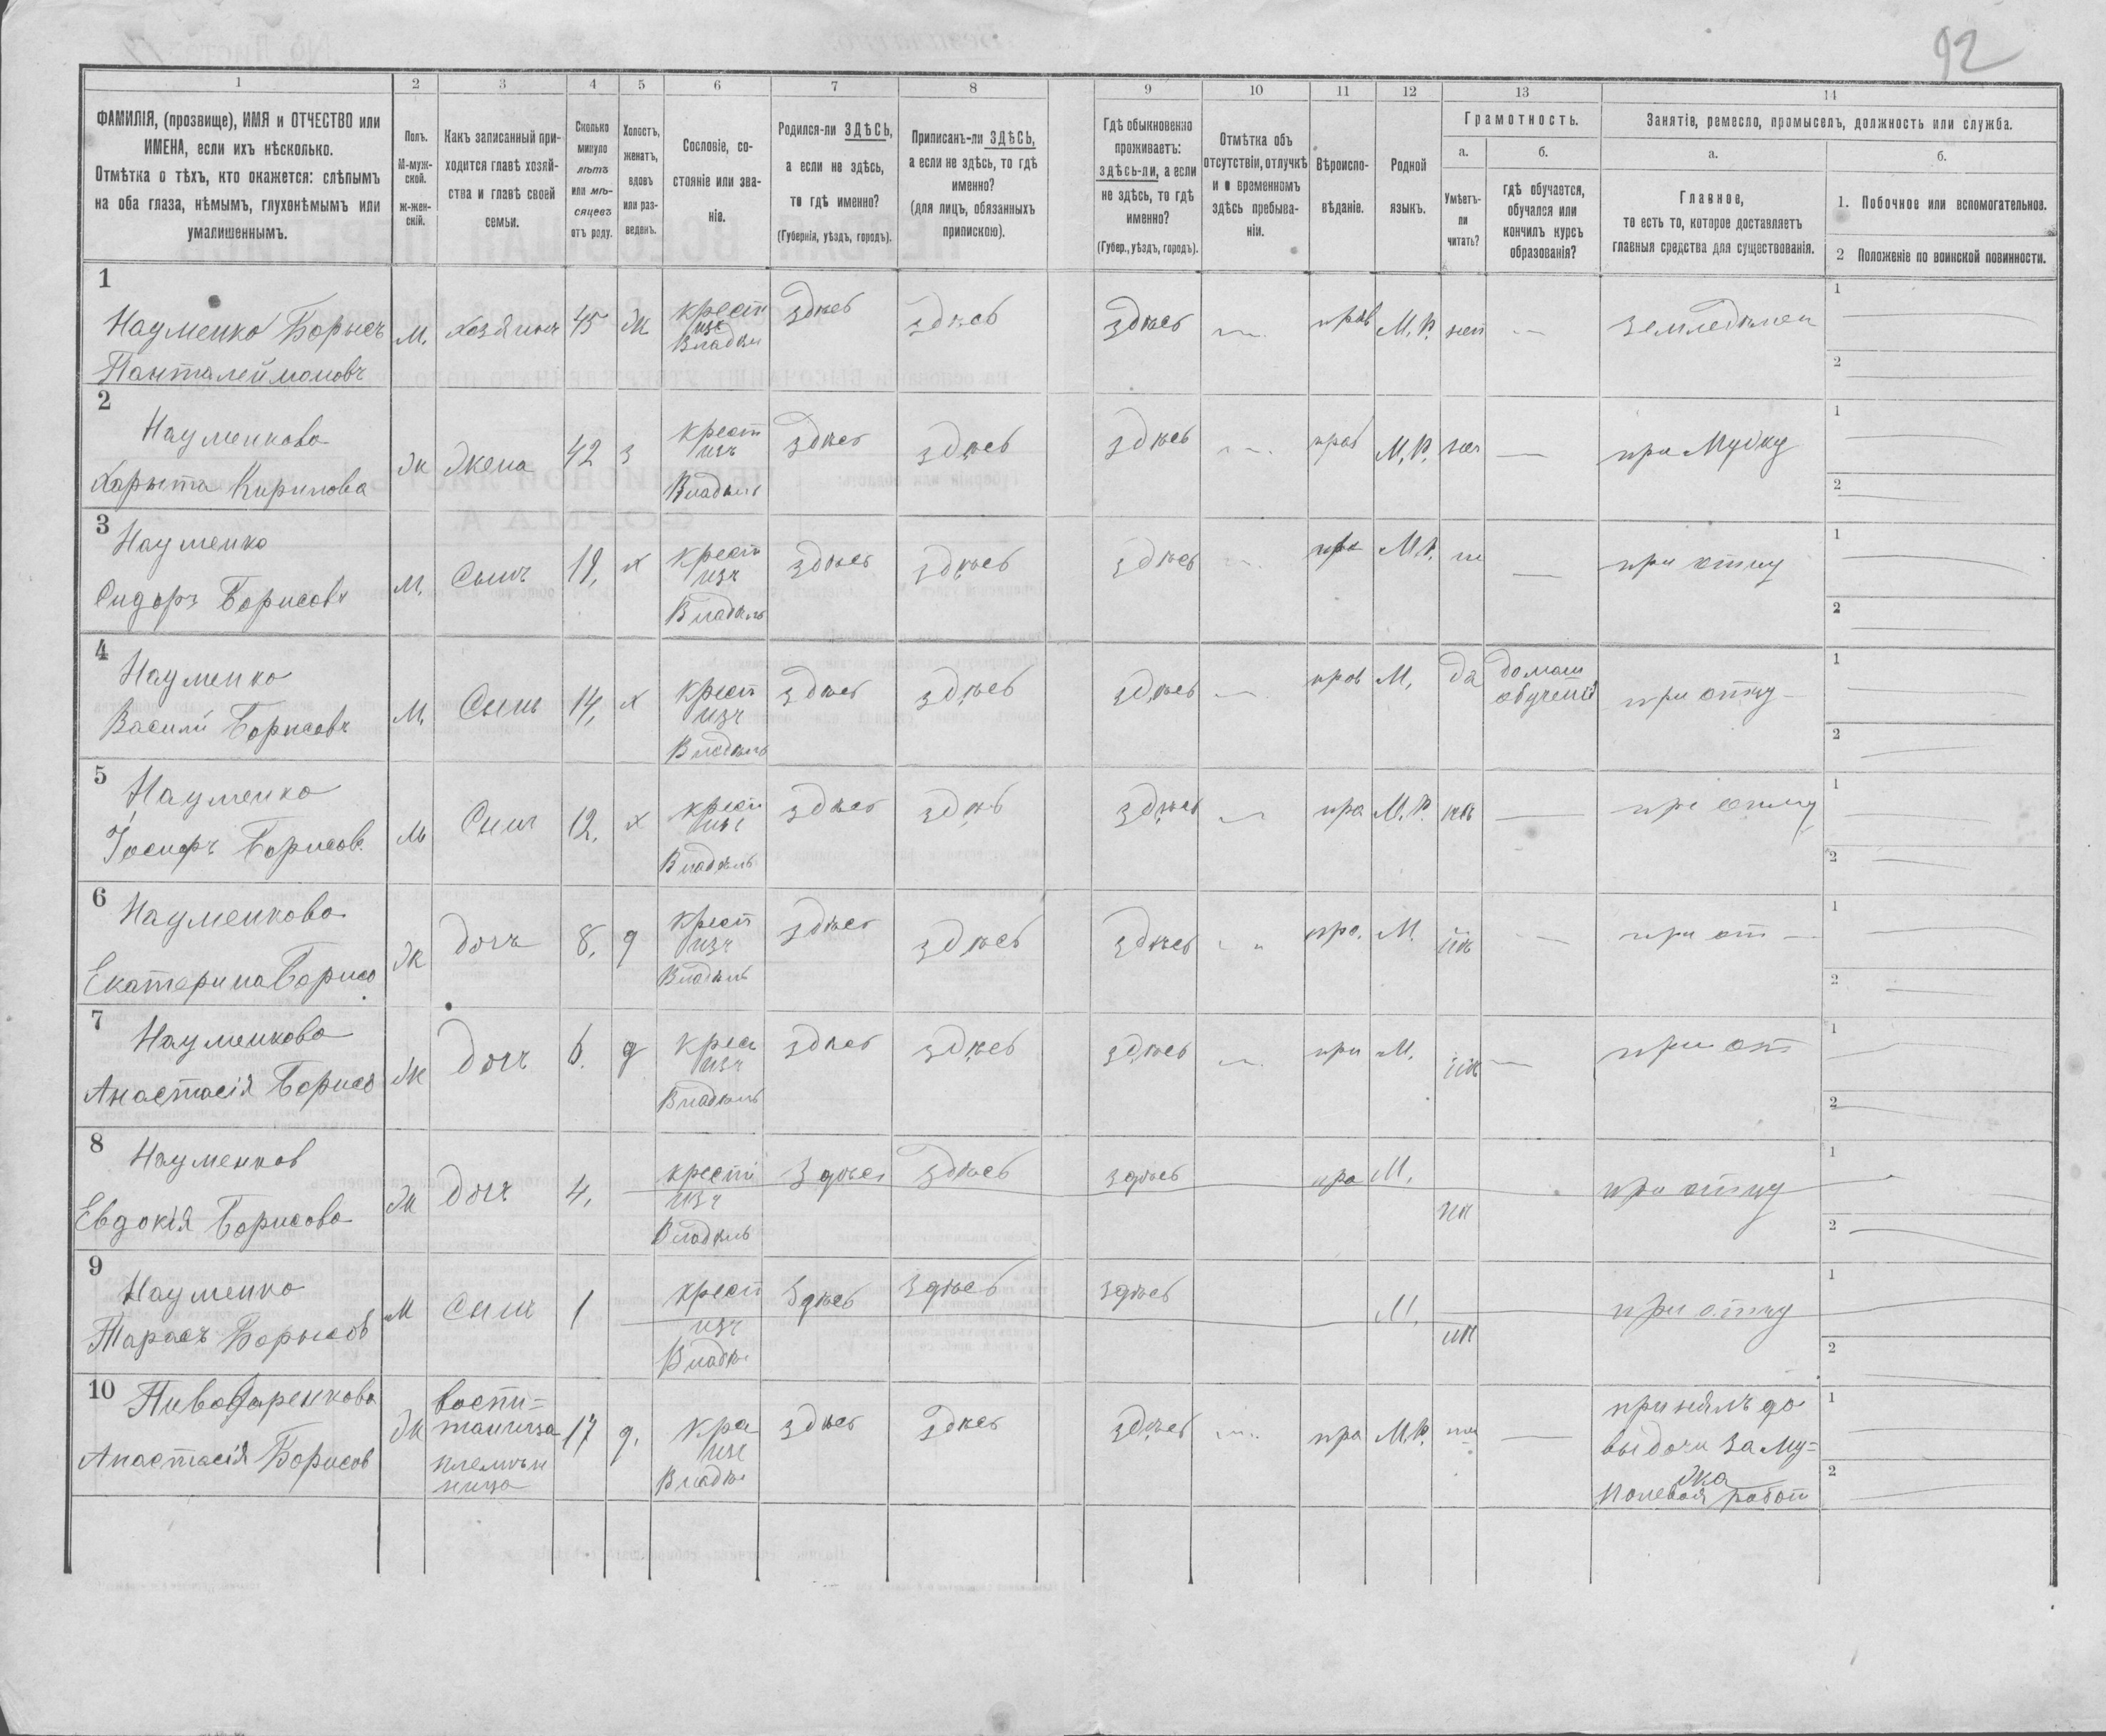 92
1 2 3 4 5 6 7 8 9 10 11 12 13 14
ФАМИЛІЯ, (прозвище), ИМЯ и ОТЧЕСТВО или ИМЕНА, если ихъ нѣсколько.
Отмѣтка о тѣхъ, кто окажется: слѣпымъ на оба глаза, нѣмымъ, глухонѣмымъ или умалишеннымъ.
Полъ.
М-мужской.
ж-женскій.
Какъ записанный приходится главѣ хозяйства и главѣ своей семьи.
Сколько минуло лѣтъ или мѣсяцевъ отъ роду.
Холостъ, женатъ, вдовъ или разведенъ.
Сословіе, состояніе или званіе.
Родился-ли ЗДѢСЬ, а если не здѣсь, то гдѣ именно?
(Губернія, уѣздъ, городъ).
Приписанъ-ли ЗДѢСЬ, а если не здѣсь, то гдѣ именно?
(для лицъ, обязанныхъ припискою).
Гдѣ обыкновенно проживаетъ: здѣсь-ли, а если не здѣсь, то гдѣ именно?
(Губер., уѣздъ, городъ).
Отмѣтка объ отсутствіи, отлучкѣ и о временномъ здѣсь пребываніи.
Вѣроисповѣданіе.
Родной языкъ.
Грамотность.
а.
Умѣетъ-ли читать?
б.
гдѣ обучается, обучался или кончилъ курсъ образованія?
Занятіе, ремесло, промыселъ, должность или служба.
а.
Главное,
то есть то, которое доставляетъ главныя средства для существованія.
б.
1. Побочное или вспомогательное.
2 Положеніе по воинской повинности.
1
Науменко Борисъ М. хозяинъ 45 Ж крест изъ Владѣл здѣсь здѣсь здѣсь прав М.Р. нет земледѣлец 1
Панталеймоновъ 2
2
Науменкова Ж Жена 42 з крест изъ Владѣль здѣсь здѣсь здѣсь прав М.Р. нет при Мужу 1
Харыта Кирилова 2
3
Науменко М. Сынъ 19, х крест изъ Владѣль здѣсь здѣсь здѣсь пра М.Р. при отцу 1
Сидоръ Борисовъ 2
4
Науменко М. Сынъ 14, х крест изъ Владѣль здѣсь здѣсь здѣсь прав М. да домаш обученіе при отцу 1
Василій Борисовъ 2
5
Науменко М Сынъ 12. х крест изъ Владѣль здѣсь здѣсь здѣсь пра М.Р. при отцу 1
Іосифъ Борисов. 2
6
Науменкова Ж дочь 8. д крест изъ Владѣль здѣсь здѣсь здѣсь пра. М. при от 1
Екатерина Борисо 2
7
Науменкова Ж дочь 6. д крес изъ Владѣль здѣсь здѣсь здѣсь при М. при от 1
Анастасія Борисо 2
8
Науменков Ж дочь 4. крест изъ Владѣль Здѣсь здѣсь здѣсь пра М. при отцу 1
Евдокія Борисова 2
9
Науменко М Сынъ 1 крест изъ Владѣ Здѣсь Здѣсь Здѣсь М. при отцу 1
Тарасъ Борысов 2
10
Пивоваренкова Ж воспитаница племѣнница 17 д. кре изъ Владѣ здѣсь здѣсь здѣсь пра М.Р. принялъ до выдачи замужа полевая работ 1
Анастасія Борисов 2